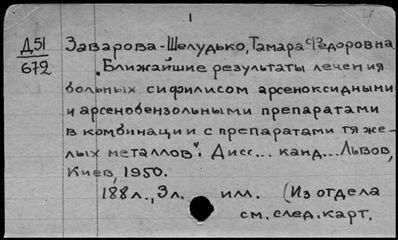 1
Д51
672
Заварова-Шелудько, Тамара Федоровна
„Ближайшие результаты лечения
больных сифилисом арсеноксидными
и арсенобензольными препаратами
в комбинации с препаратами тяже-
лых металлов". Дисс... канд... Львов,
Киев, 1950.
188л., 3л. илл. (Из отдела
см. след. карт.